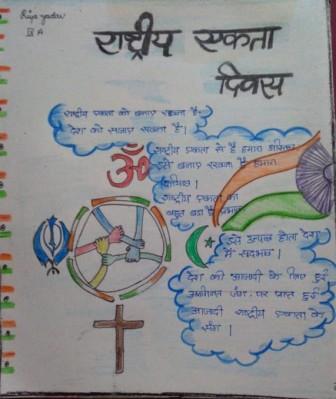 Riya yadav
IX A
राष्ट्रीय एकता
दिवस
राष्ट्रीय एकता को बनाए रखना है,
देश को सजाए रखना है।
राष्ट्रीय एकता से है हमारा अस्तित्व
इसे बनाए रखना है हमारा
दायित्व।
राष्ट्रीय एकता का
बहुत बड़ा है प्रभाव
इससे उत्पन्न होता देश
में सदभाव।
देश की आजादी के लिए हुई
अनगिनत जंग, पर प्राप्त हुई
आजादी राष्ट्रीय एकता के
संग।
ॐ